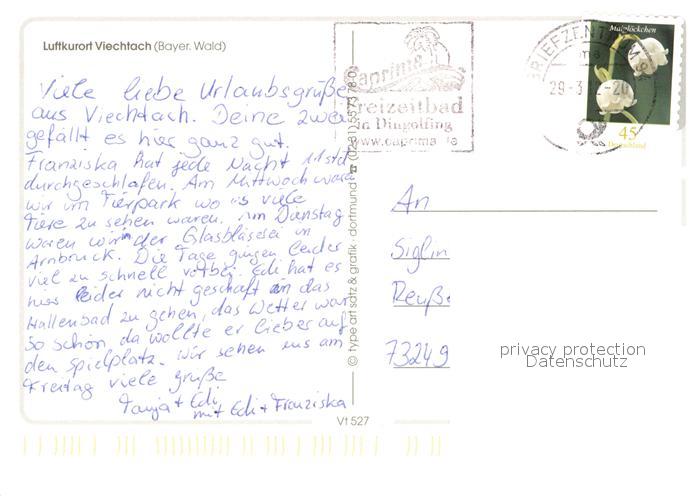 Luftkurort Viechtach (Bayer. Wald)
Viele liebe Urlaubsgrüße
aus Viechtach. Deine zwei
gefällt es hier ganz gut.
Franziska hat jede Nacht 11 std
durchgeschlafen. Am Mittwoch waren
wir im Tierpark wo es viele
Tiere zu sehen waren. Am Dienstag
waren wir in der Glasbläserei in
Arnbruck. Die Tage gingen leider
viel zu schnell vorbei. Edi hat es
hier leider nicht geschaft in das
Hallenbad zu gehen, das Wetter war
so schön, da wollte er lieber auf
den Spielplatz. Wir sehen uns am
Freitag viele grüße
Tanja + Edi
mit Edi + Franziska
© type art satz & grafik · dortmund
Vt 527
caprima
Freizeitbad
in Dingolfing
www.caprima.de
BRIEFZENTRUM
29-3
Maiglöckchen
45
Deutschland
An
Siglin
Reuße
73249
privacy protection
Datenschutz